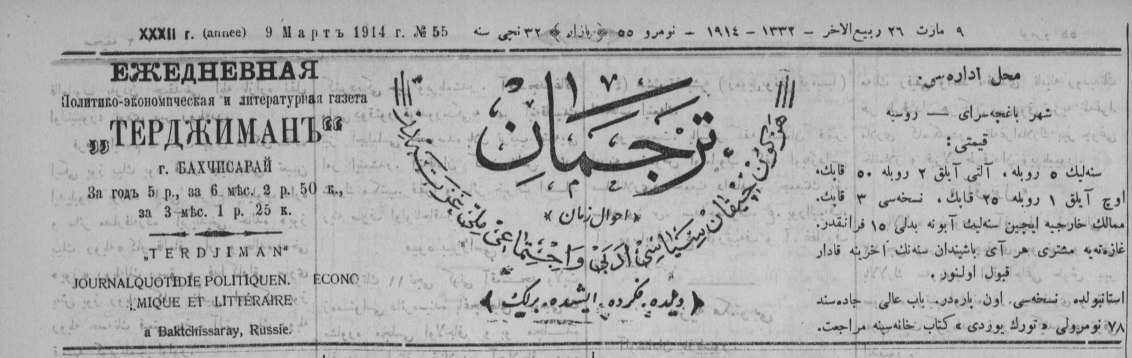 XXXII г. (annee) 9 Мартъ 1914 г. № 55
٩ مارت ٢٦ ربیع الاخر — ١٣٣٢ — ١٩١٤ — نومرو ٥٥ ﴿بازار﴾ ٣٢ نجی سنه
ЕЖЕДНЕВНАЯ
Политико-экономическая и литературная газета
„ТЕРДЖИМАНЪ“
г. БАХЧИСАРАЙ
За годъ 5 р., за 6 мѣс. 2 р. 50 к.,
за 3 мѣс. 1 р. 25 к.
„TERDJIMAN"
JOURNALQUOTIDIE POLITIQUEN. ECONO
MIQUE ET LITTÉRAIRE
a Baktchissaray, Russie.
ترجمان
« احوال زمان »
هر كون چیقان سیاسی ادبی و اجتماعی ملی غزته در
﴿ دیلده، فكرده، ایشده برلك ﴾
محل اداره سی:
شهر باغچه سرای — روسیه
قیمتی:
سنه لیك ٥ روبله، آلتی آیلق ٢ روبله ٥٠ قاپك،
اوچ آیلق ١ روبله ٢٥ قاپك، نسخه سی ٣ قاپك.
ممالك خارجیه ایچین سنه لیت آبونه بدلی ١٥ فرانقدر.
غازته یه مشتری هر آی باشیندان سنه نك اخرینه قادار
قبول اولنور.
استانبولده نسخه سی اون پاره در. باب عالی جاده سند
٧٨ نومرولی «تورك یوردی» كتاب خانه سینه مراجعت.